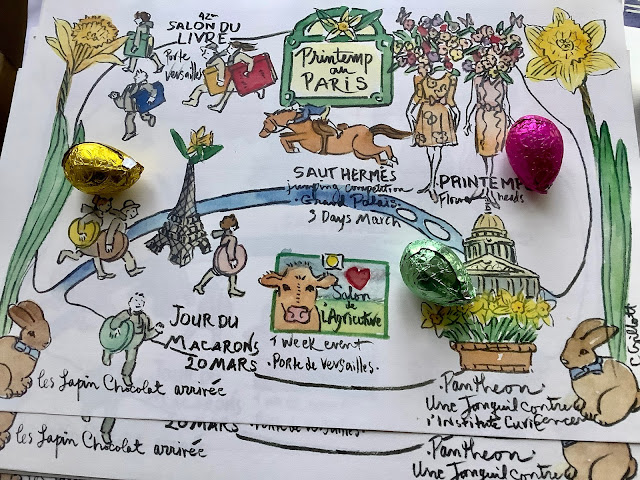 42e
SALON DU
LIVRE
Porte
Versailles
Printemp
au
PARIS
SAUT HERMÈS
jumping competition
Grand Palais
3 Days March
PRINTEMP
Flower heads
JOUR DU
MACARONS
20 MARS
les Lapin Chocolat arrivée
Salon
de
L'Agriculture
1 week event
Porte de Versailles.
Pantheon
Une Jonquil contre
l'Institute Curie
C Gillott
20 MARS
Porte de Versailles.
les Lapin Chocolat arrivée
Pantheon
Une Jonquil contre